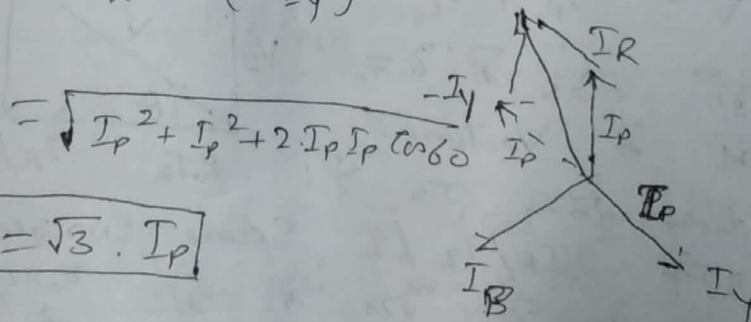 -y)
= √I_P² + I_P² + 2.I_P I_P Cos60
= √3 . I_P
I_R
-I_y
I_P
I_P
I_P
I_B
I_y